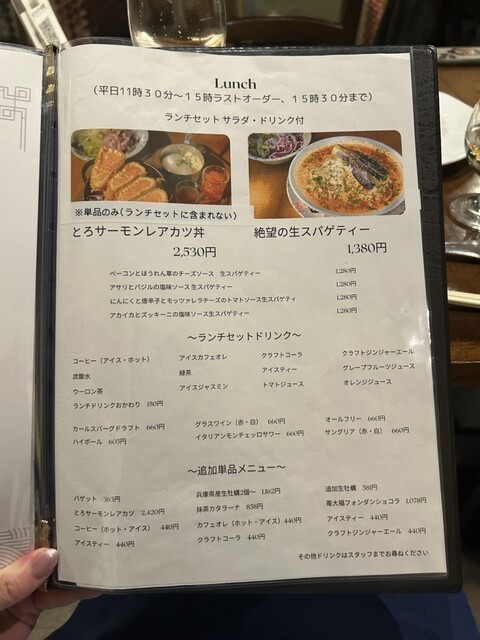 Lunch
（平日11時３０分～１５時ラストオーダー、１５時３０分まで）
ランチセット サラダ・ドリンク付
※単品のみ（ランチセットに含まれない）
とろサーモンレアカツ丼
2,530円
絶望の生スパゲティー
1,380円
ベーコンとほうれん草のチーズソース　生スパゲティー 1,280円
アサリとバジルの塩味ソース生スパゲティー 1,280円
にんにくと唐辛子とモッツァレラチーズのトマトソース生スパゲティ 1,280円
アカイカとズッキーニの塩味ソース生スパゲティー 1,280円
～ランチセットドリンク～
コーヒー（アイス・ホット） アイスカフェオレ クラフトコーラ クラフトジンジャーエール
炭酸水 緑茶 アイスティー グレープフルーツジュース
ウーロン茶 アイスジャスミン トマトジュース オレンジジュース
ランチドリンクおかわり 150円
カールスバーグドラフト 660円 グラスワイン（赤・白） 660円 オールフリー 660円
ハイボール 605円 イタリアンモンチェッロサワー 660円 サングリア（赤・白） 660円
～追加単品メニュー～
バゲット 363円 兵庫県産生牡蠣2個～ 1,162円 追加生牡蠣 581円
とろサーモンレアカツ 2,420円 抹茶カタラーナ 858円 苺大福フォンダンショコラ 1,078円
コーヒー（ホット・アイス） 440円 カフェオレ（ホット・アイス） 440円 アイスティー 440円
アイスティー 440円 クラフトコーラ 440円 クラフトジンジャーエール 440円
その他ドリンクはスタッフまでお尋ねください